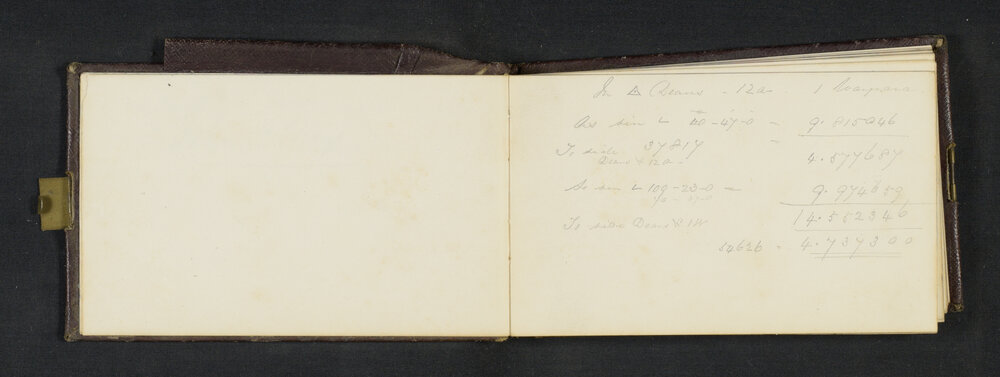 In △ Deans - 12a - 1
As sin ∠ 40-47-0 = 9.815046
To side 37817 = 4.577687
Deans & 12a -
So sin ∠ 109-23-0 = 9.974659
14.552346
To side Deans &
54626 = 4.737300